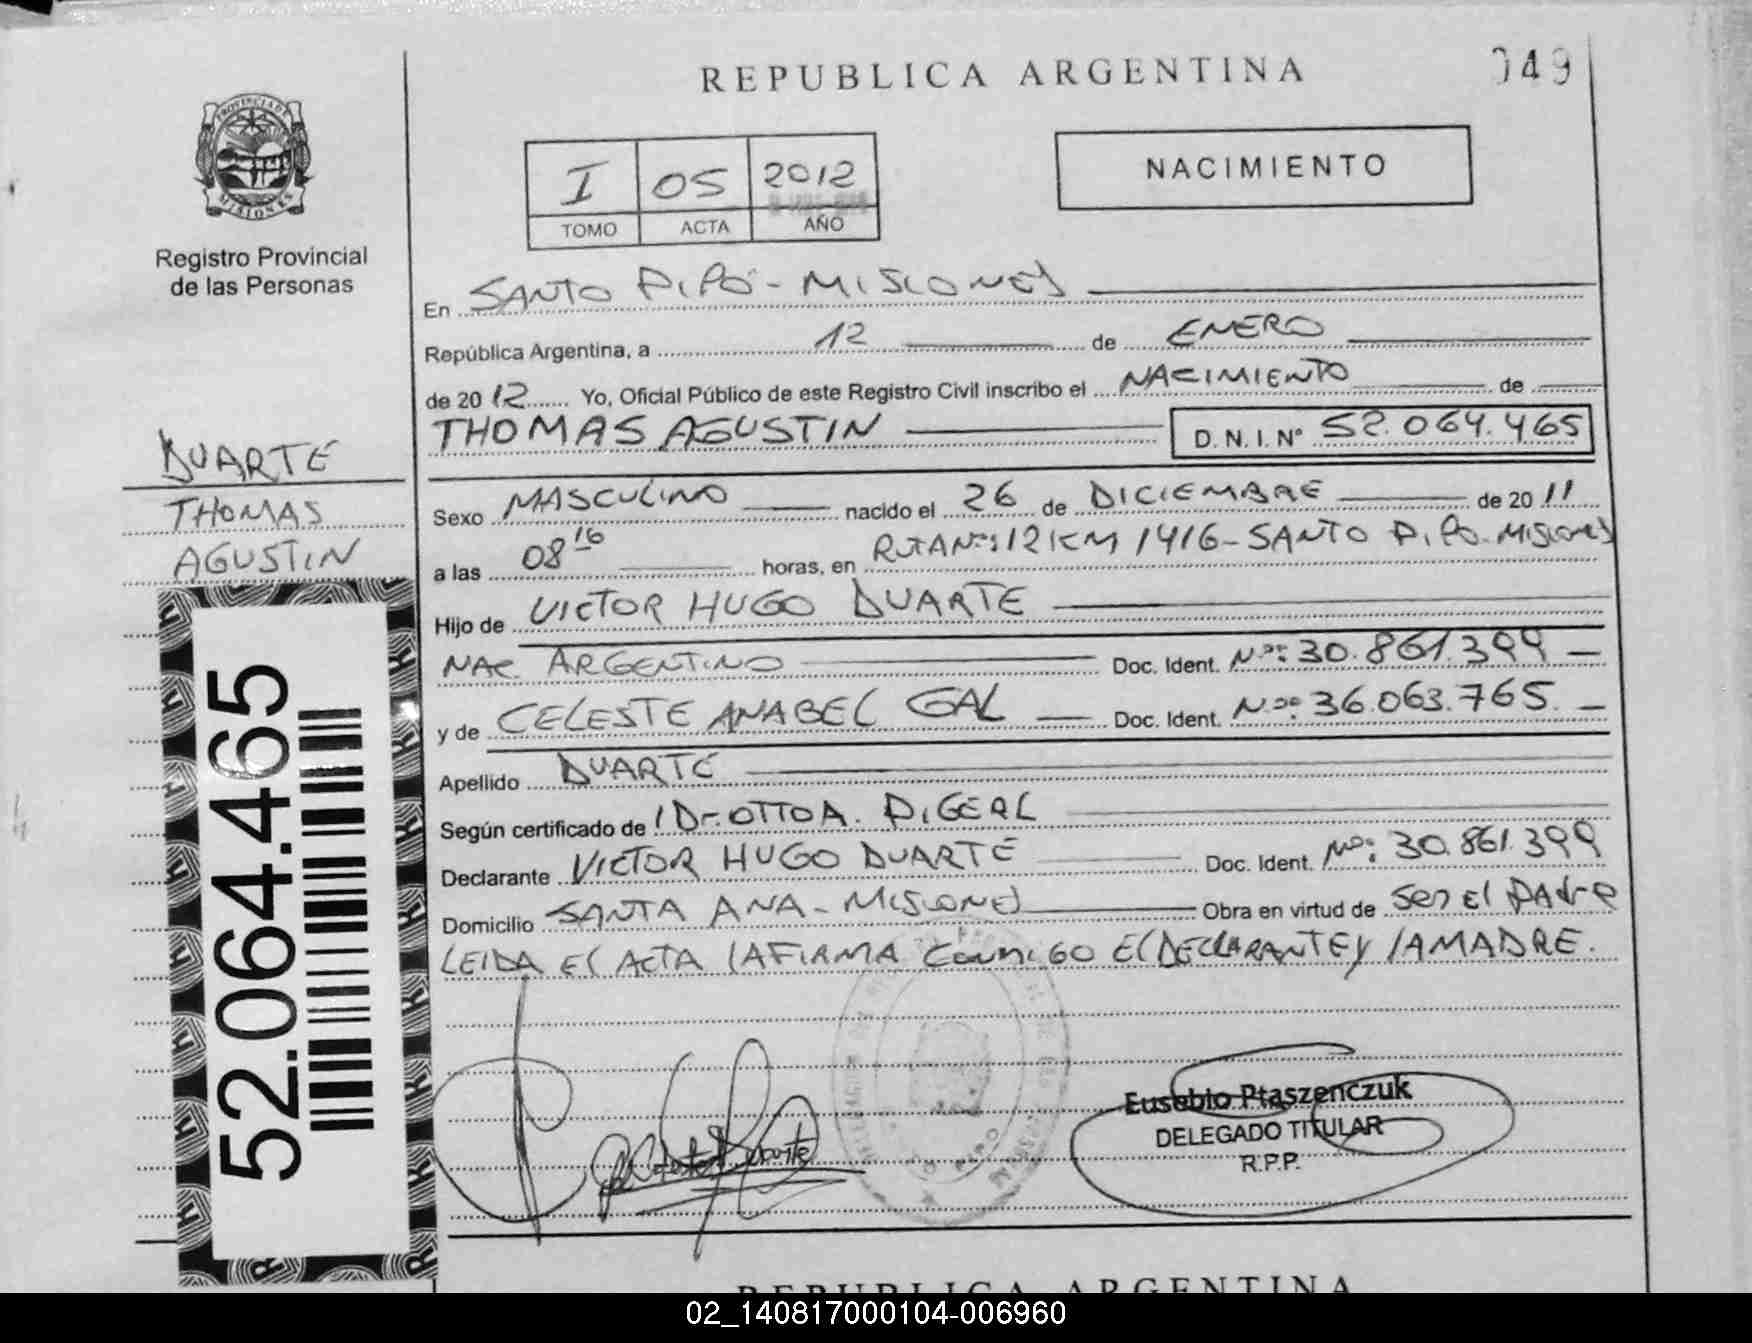 REPUBLICA ARGENTINA
049
PROVINCIA DE
MISIONES
Registro Provincial
de las Personas
I 05 2012
TOMO ACTA AÑO
NACIMIENTO
En SANTO PIPÓ - MISIONES
República Argentina, a 12 de ENERO
de 2012 Yo, Oficial Público de este Registro Civil inscribo el NACIMIENTO de
THOMAS AGUSTIN D.N.I.Nº 52.064.465
DUARTE
THOMAS
AGUSTIN
Sexo MASCULINO nacido el 26 de DICIEMBRE de 2011
a las 08 16 horas, en RUTA Nº: 12 KM 1416 - SANTO PIPO - MISIONES
Hijo de VICTOR HUGO DUARTE
NAC. ARGENTINO Doc. Ident. Nº: 30.861.399
y de CELESTE ANABEL GAL Doc. Ident. Nº: 36.063.765
Apellido DUARTE
Según certificado de / Dr. OTTO A. PIGERL
Declarante VICTOR HUGO DUARTE Doc. Ident. Nº: 30.861.399
Domicilio SANTA ANA - MISIONES Obra en virtud de ser El PAdre
LEIDA El ACTA lA FIRMA CONMIGO El DECLARANTE y lA MADRE.
52.064.465
Eusebio Ptaszenczuk
DELEGADO TITULAR
R.P.P.
REPUBLICA ARGENTINA
02_140817000104-006960